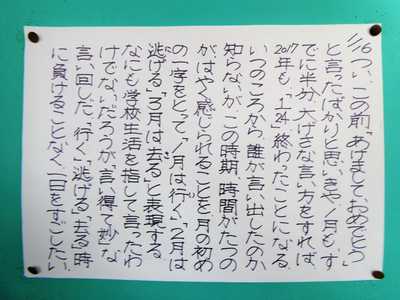 1/16
つい、この前「あけましておめでとう」
と言ったばかりと思いきや1月も、す
でに半分、大げさな言い方をすれば、
2017年も、「1/24」終わったことになる。
いつのころから、誰が言い出したのか
知らないが、この時期、時間がたつの
が、はやく感じられることを月の初め
の一字をとって、「1月は行く」、「2月は
逃げる」、「3月は去る」と表現する。
なにも、学校生活を指して、言ったわ
けでないだろうが、「言い得て妙」な
言い回しだ。「行く」、「逃げる」、「去る」時
に負けることなく一日をすごしたい。